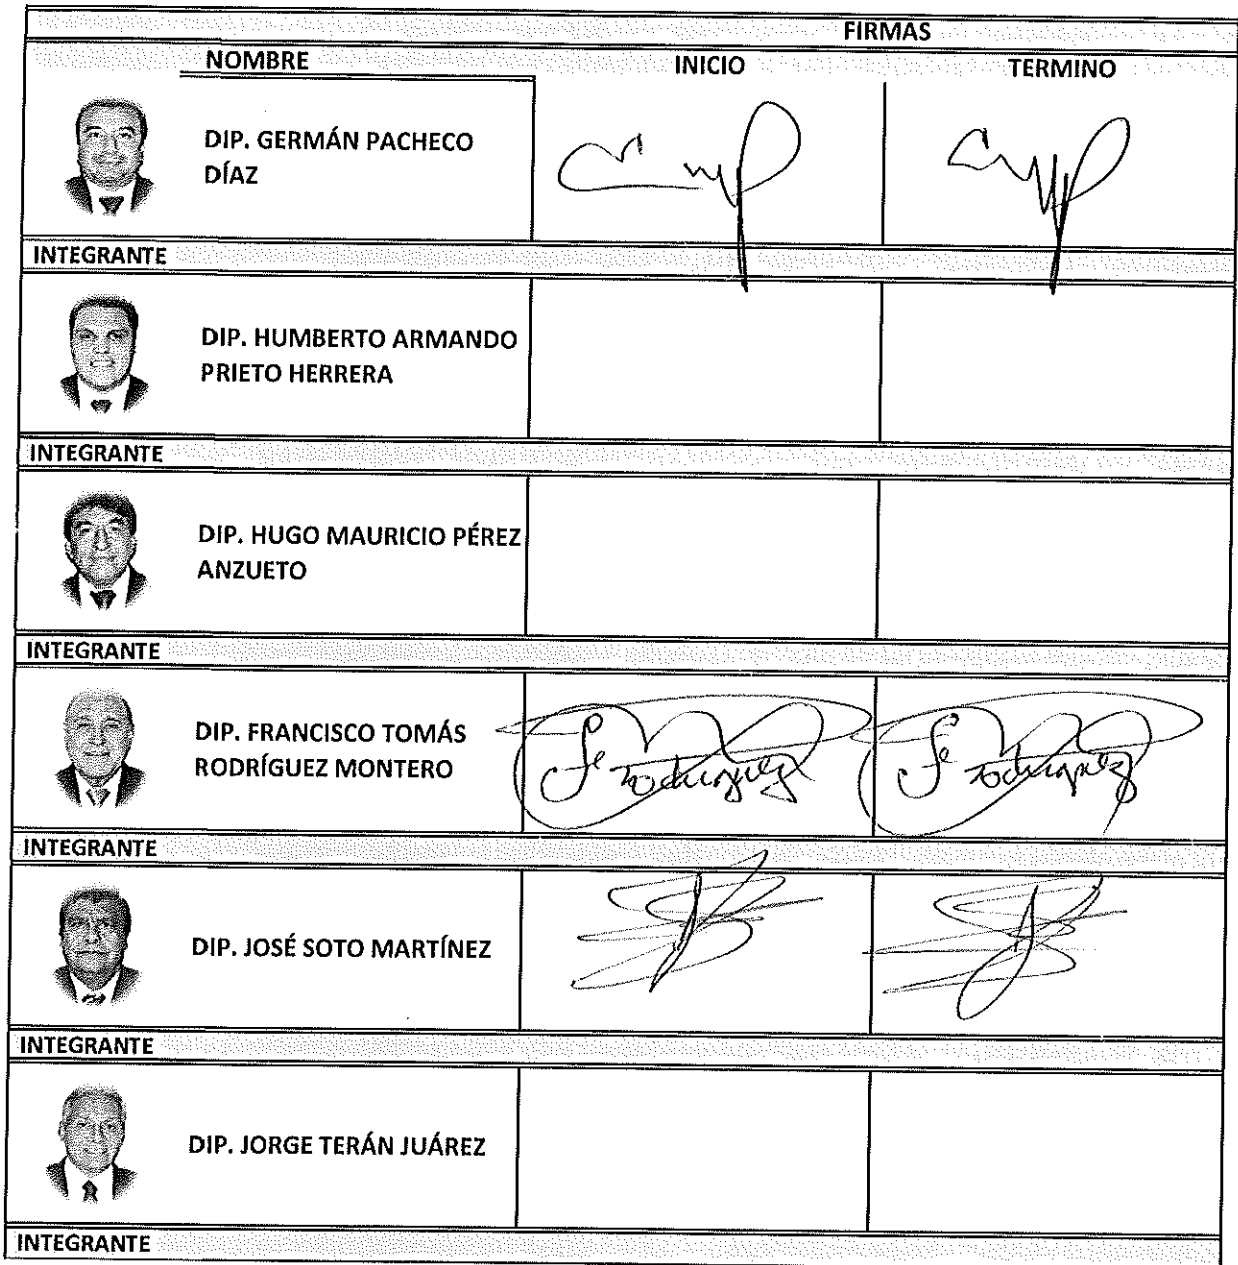 FIRMAS
NOMBRE INICIO TERMINO
DIP. GERMÁN PACHECO
DÍAZ
INTEGRANTE
DIP. HUMBERTO ARMANDO
PRIETO HERRERA
INTEGRANTE
DIP. HUGO MAURICIO PÉREZ
ANZUETO
INTEGRANTE
DIP. FRANCISCO TOMÁS
RODRÍGUEZ MONTERO
Rodriguez Rodriguez
INTEGRANTE
DIP. JOSÉ SOTO MARTÍNEZ
INTEGRANTE
DIP. JORGE TERÁN JUÁREZ
INTEGRANTE